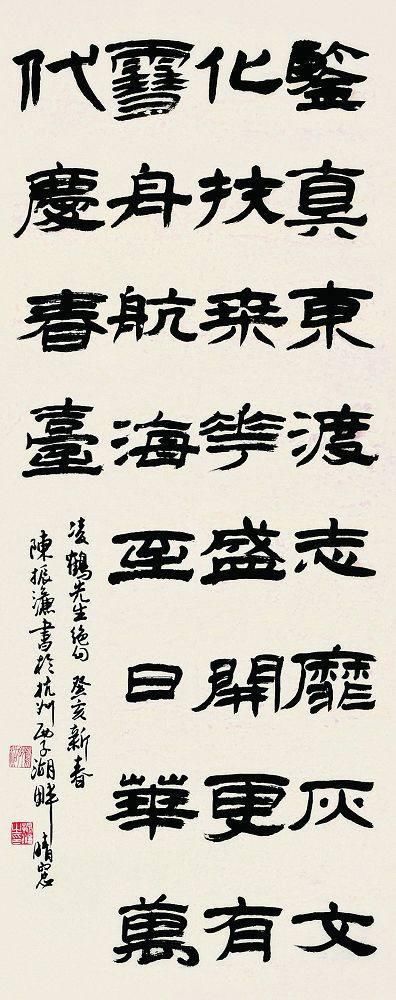 鑒真東渡志靡灰文
化扶桒華盛開更有
雪舟航海至日華萬
代慶春臺
凌鶴先生絶句 癸亥新春
陳振濂書於杭州西子湖畔 晴窓